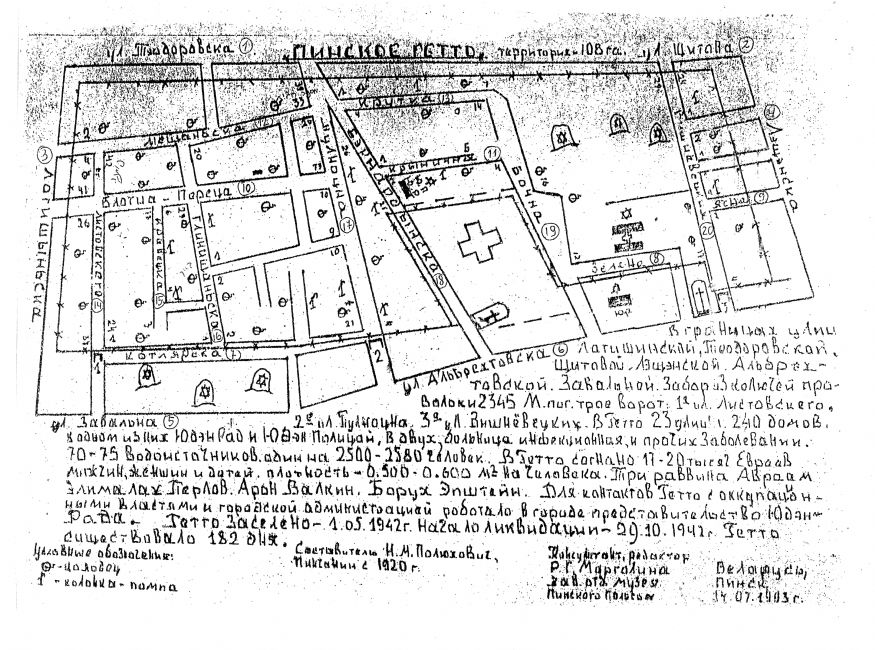 ул. Теодоровска ①
ПИНСКОЕ ГЕТТО. территория - 10 8 га.
ул. Щитова ②
③ Лагишыньска
Мещаньска 12
Крутка 13
Блотна - Пореца 10
Листовскего 14
Кравецка 15
Глинищаньска 16
Пулночна 17
Бэрнардыньска 18
Крынична 11
Бочна 19
Зелена 8
20
9
4
Котлярска 7
ул. Завальна ⑤
ул. Альбрехтовска ⑥
В границах улиц
Лагишинской, Теодоровской,
Щитовой, Ляцэнской, Альбрех-
товской, Завальной. Забор из колючей про-
волоки 2345 м. пог. трое ворот: 1º ул. Листовского,
2º ул. Пулночна. 3º ул. Вишнёвецких. В Гетто 23 улиц 240 домов.
в одном из них Юдэнрад и Юдэн Полицай, в двух, больница инфекционная, и прочих заболевании.
70-75 водоисточников. один на 2500-2580 человек. В Гетто согнано 17-20 тысяч Евреев
мужчин, женшин и дэтэй. плотность - 0.500-0.600 м² на человека. Три раввина Авраам
Элималах Перлов. Арон Валкин. Борух Эпштейн. Для контактов Гетто с оккупацон-
ными властями и городской администрацией роботало в городе представительство Юдэн-
Рада. Гетто Заселено - 1.05.1942г. Начало ликвидации - 29.10.1942г. Гетто
существовало 182 дня.
Условные обозначения:
- колодец
- колонка - помпа
Составитель Н.М. Полюхович,
Пинчанин с 1920 г.
Консультант, редактор
Р.Г. Марголина
зав. отд. музея
Пинского Полесья
Беларусь,
Пинск
14.07.1993 г.